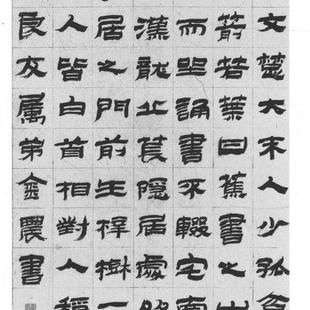 文楚大末人少孤
箭若葉曰蕉書之山
而坐誦書不輟宅南
漢龍丘萇隱居處
居之門前生梓樹一
人皆白首相對人稱
良友属弟金農書